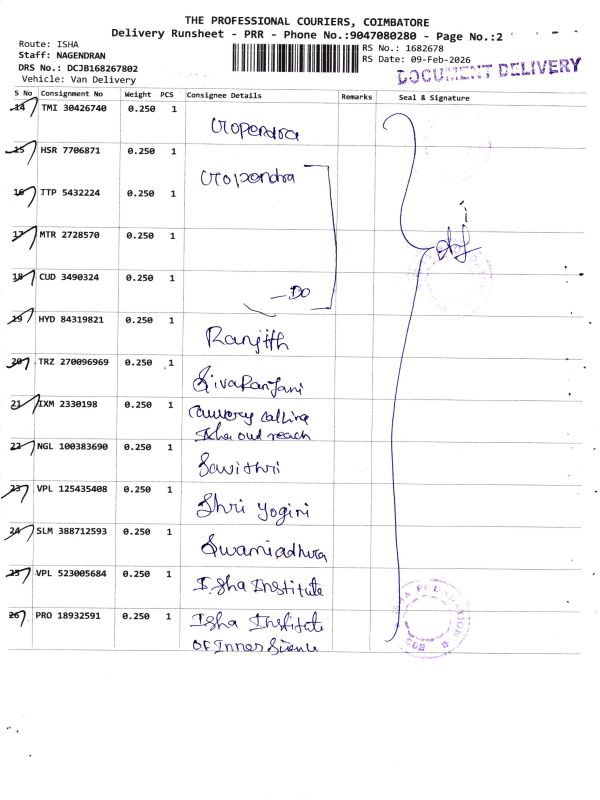 THE PROFESSIONAL COURIERS, COIMBATORE
Delivery Runsheet - PRR - Phone No.:9047080280 - Page No.:2
Route: ISHA
Staff: NAGENDRAN
DRS No.: DCJB168267802
Vehicle: Van Delivery
RS No.: 1682678
RS Date: 09-Feb-2026
DOCUMENT DELIVERY
S No Consignment No Weight PCS Consignee Details Remarks Seal & Signature
14 TMI 30426740 0.250 1 Gopendra
15 HSR 7706871 0.250 1 Gopendra
16 TTP 5432224 0.250 1
17 MTR 2728570 0.250 1
18 CUD 3490324 0.250 1 -DO
19 HYD 84319821 0.250 1 Ranjith
20 TRZ 270096969 0.250 1 SivaRanjani
21 IXM 2330198 0.250 1 calling
Isha out reach
22 NGL 100383690 0.250 1 Savithri
23 VPL 125435408 0.250 1 Shri Yogini
24 SLM 388712593 0.250 1 Swamiadhura
25 VPL 523005684 0.250 1 Isha Institute
26 PRO 18932591 0.250 1 Isha Institute
OF Inner Sience
ISHA FOUNDATION
CBE